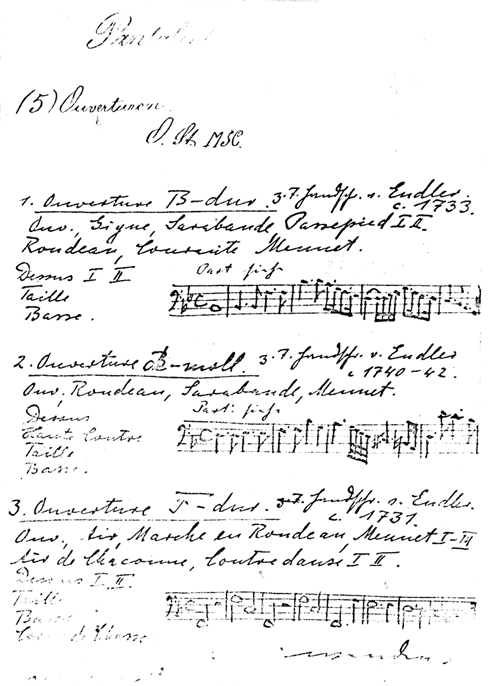 (5) Ouverturen.
O. St. MSC.
1. Ouverture B-dur. z. T. Handschr. v. Endler.
c. 1733.
Ouv., Gigue, Sarabande Passepied I II.
Rondeau, Courante Menuet.
Dessus I II
Taille
Basse.
2. Ouverture -moll. z. T. Handschr. v. Endler
c 1740-42.
Ouv, Rondeau, Sarabande, Menuet.
Dessus
Haute Contre
Taille
Basse.
3. Ouverture F-dur. z. T. Handschr. v. Endler.
c. 1731.
Ouv, Air, Marche en Rondeau, Menuet I-III
Air de Chaconne, Contredanse I II.
Dessus I II.
Taille
Basse
Cors de Chasse